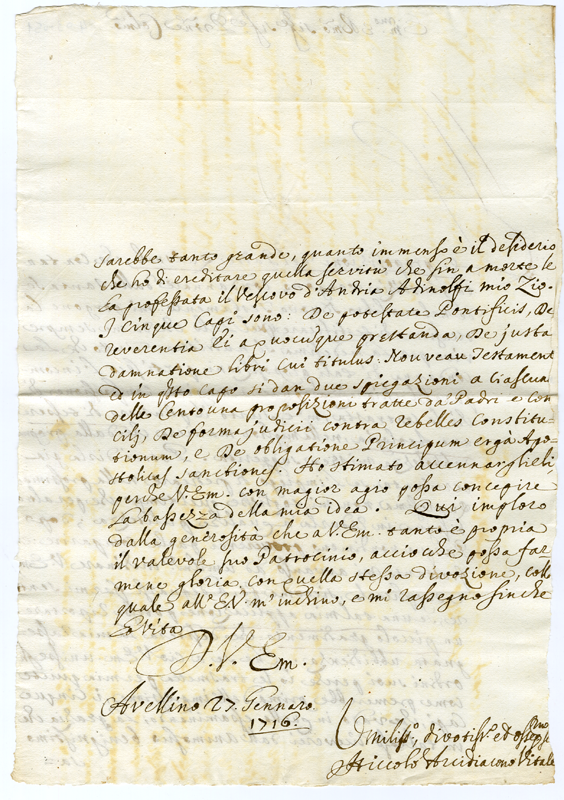 sarebbe tanto grande, quanto immenso è il desiderio
che ho di ereditare quella servitù che fin a morte le
ha professata il Vescovo d'Andria Adinolfi mio Zio.
I Cinque Capi sono: De potestate Pontificis, De
reverentia Ei a quocunque prestanda, De justa
damnatione libri cui titulus: Nouveau Testament
ed in qsto capo si dan due spiegazioni a ciascuna
delle Cento una proposizioni tratte da Padri e con
cilj, De forma judicii contra rebelles Constitu-
tionum, e De obligatione Principum ergà Apo
stolicas sanctiones. Ho stimato accennarglieli
perche V. Em. con magior agio possa concepire
la bassezza della mia idea. Qui imploro
dalla generosità che a V. Em. tanto è propria
il valevole suo Patrocinio, acciocche possa far
mene gloria, con quella stessa divozione, colla
quale all' E.V. m'inchino, e mi rassegno finche
ho vita
D. V. Em.
Avellino 27. Gennaro.
1716.
Umiliss.o divotiss. ed
Niccolò Arcidiacono Vitale